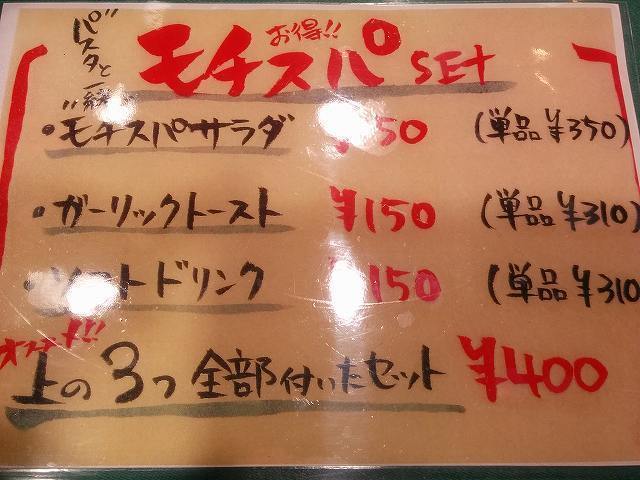 パスタと一緒に
お得!!
モチスパSET
・モチスパサラダ 50 (単品¥350)
・ガーリックトースト ¥150 (単品¥310)
・ソフトドリンク ¥150 (単品¥310
オススメ!!
上の3つ全部付いたセット ¥400